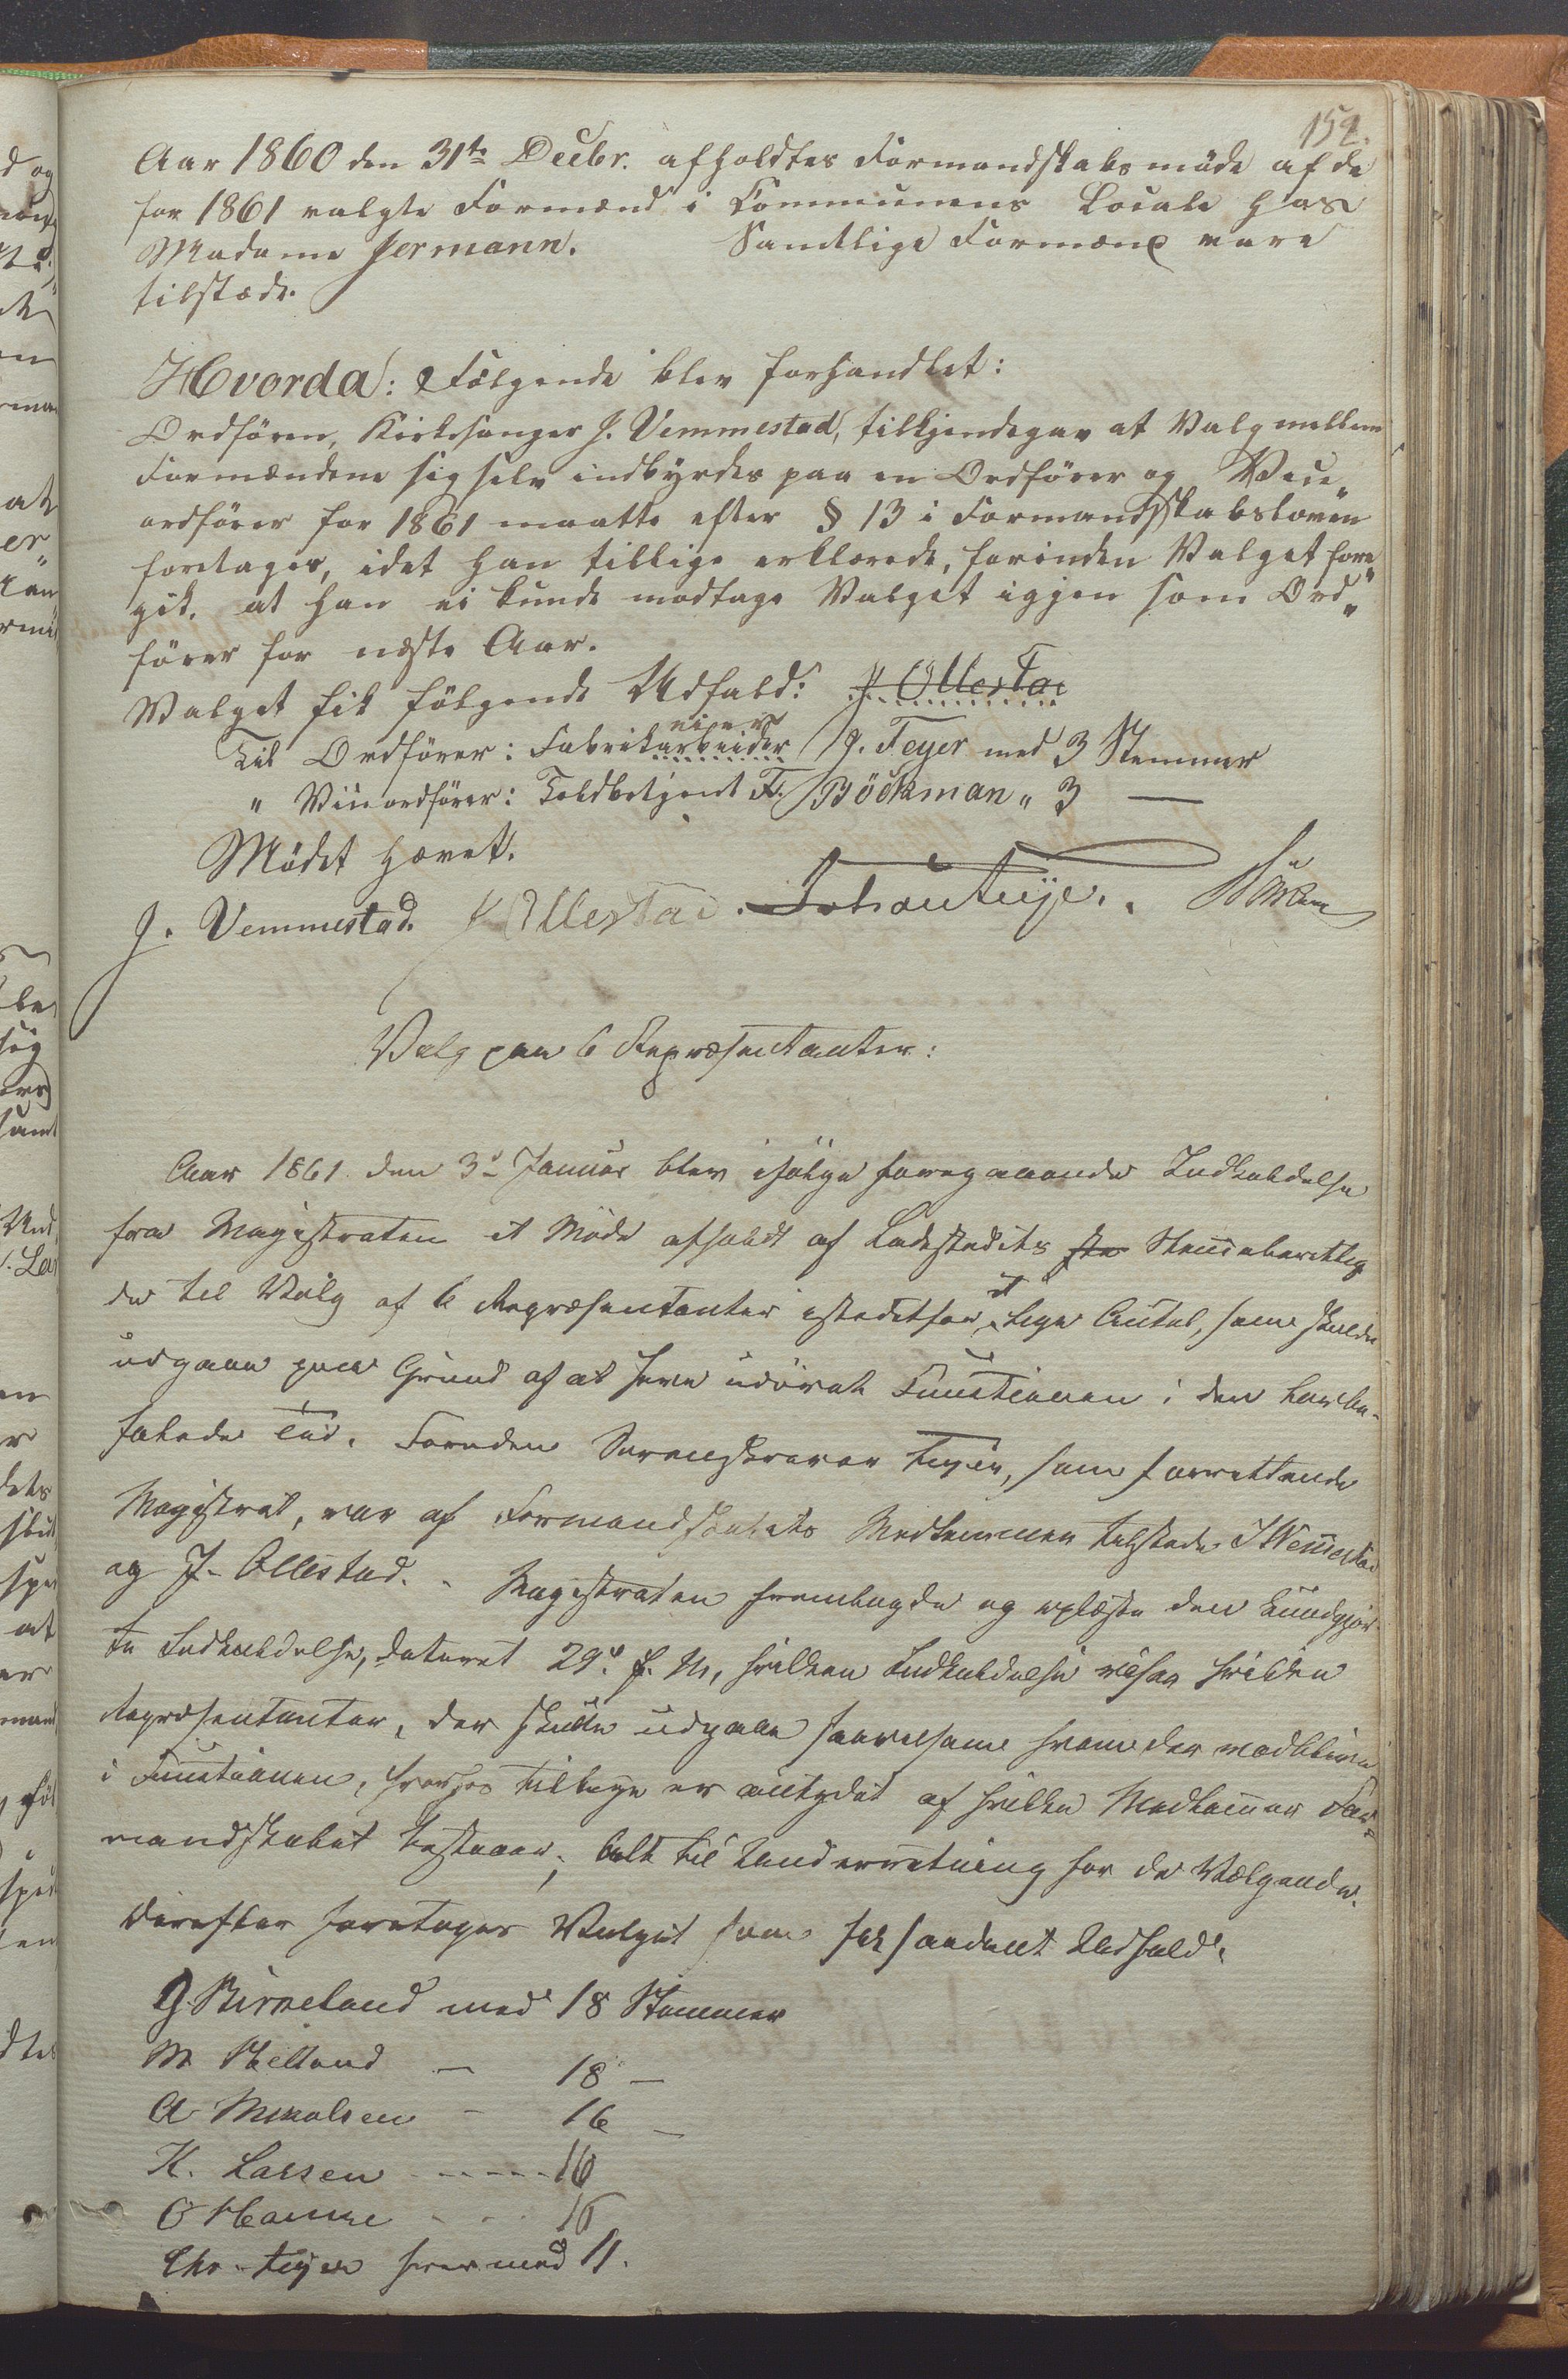 152.
Aar 1860 den 31te Decbr. afholdtes Formandskabsmöde af de
for 1861 valgte Formænd i Communens Locale hos
Madame Jermann. Samtlige Formænd vare
tilstæde.
Hvorda: Fölgende blev forhandlet:
Ordfören, Kirkesanger J. Vemmestad, tilkjendegav at Valg mellem
Formændene sig selv indbyrdes paa en Ordförer og Vice„
ordförer for 1861 maatte efter § 13 i Formandsskabsloven
foretages, idet han tillige erklærede, forinden Valget fore„
gik, at han ei kunde modtage Valget iggjen som Ord„
förer for næste Aar.
Valget fik fölgende Udfald: J Ollestad
Til Ordförer: Fabrikarbeider J. Feyer med 3 Stemmer
eier
„ Viceordförer: Toldbetjent F. Böckman „ 3 —
Mödet hævet.
J. Vemmestad. J Ollestad. Johan Feyer. Böckman
Valg paa 6 Repræsentanter:
Aar 1861 den 3d Januar blev ifölge foregaaende Indkaldelse
fra Magistraten et Möde afholdt af Ladestedets ste Stemeberettig
de til Valg af 6 Repræsentanter istedetfor et lige Antal, som skulde
udgaae paa Grund af at have udövet Functionen i den lovbe-
falede Tid. Foruden Sorenskriver Feyer, som forrettende
Magistrat, var af Formandskabets Medlemmer tilstede J Vemestad
og J. Ollestad. Magistraten fremlagde og oplæste den kundgjor-
te Indkaldelse, dateret 29de f. M, hvilken Indkaldelse viser hvilke
Repræsentanter, der skulle udgaae saavelsom hvem der vedblive
i Functionen, hvorhos tillige er antydet af hvilke Medlemer For-
mandskabet bestaaer, Alt til Underretning for de Vælgende.
Derefter foretoges Valget som fik saadant Udfald:
G. Birkeland med 18 Stemmer
M Skelland — 18 —
A Mikalsen — 16 —
K. Larsen - - - - - 16
O Hamre - - - 16
Chr. Feyer hver med 11.